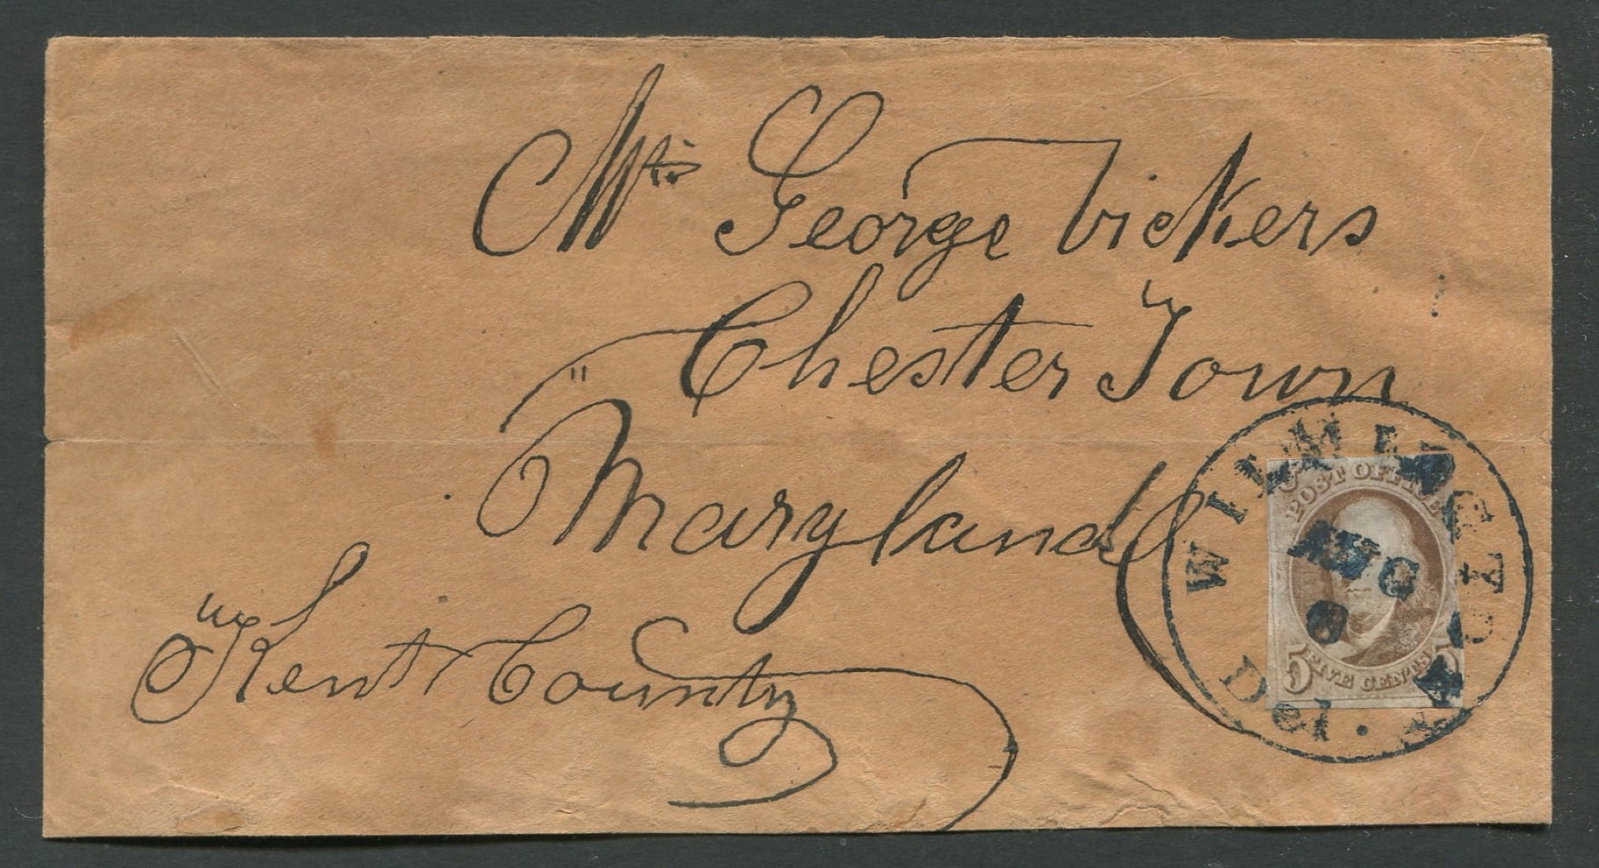 Mr George Vickers
Chester Town
Maryland
Kent County
WILMINGTON
Del.
AUG
8
POST OFFICE
5 FIVE CENTS 5